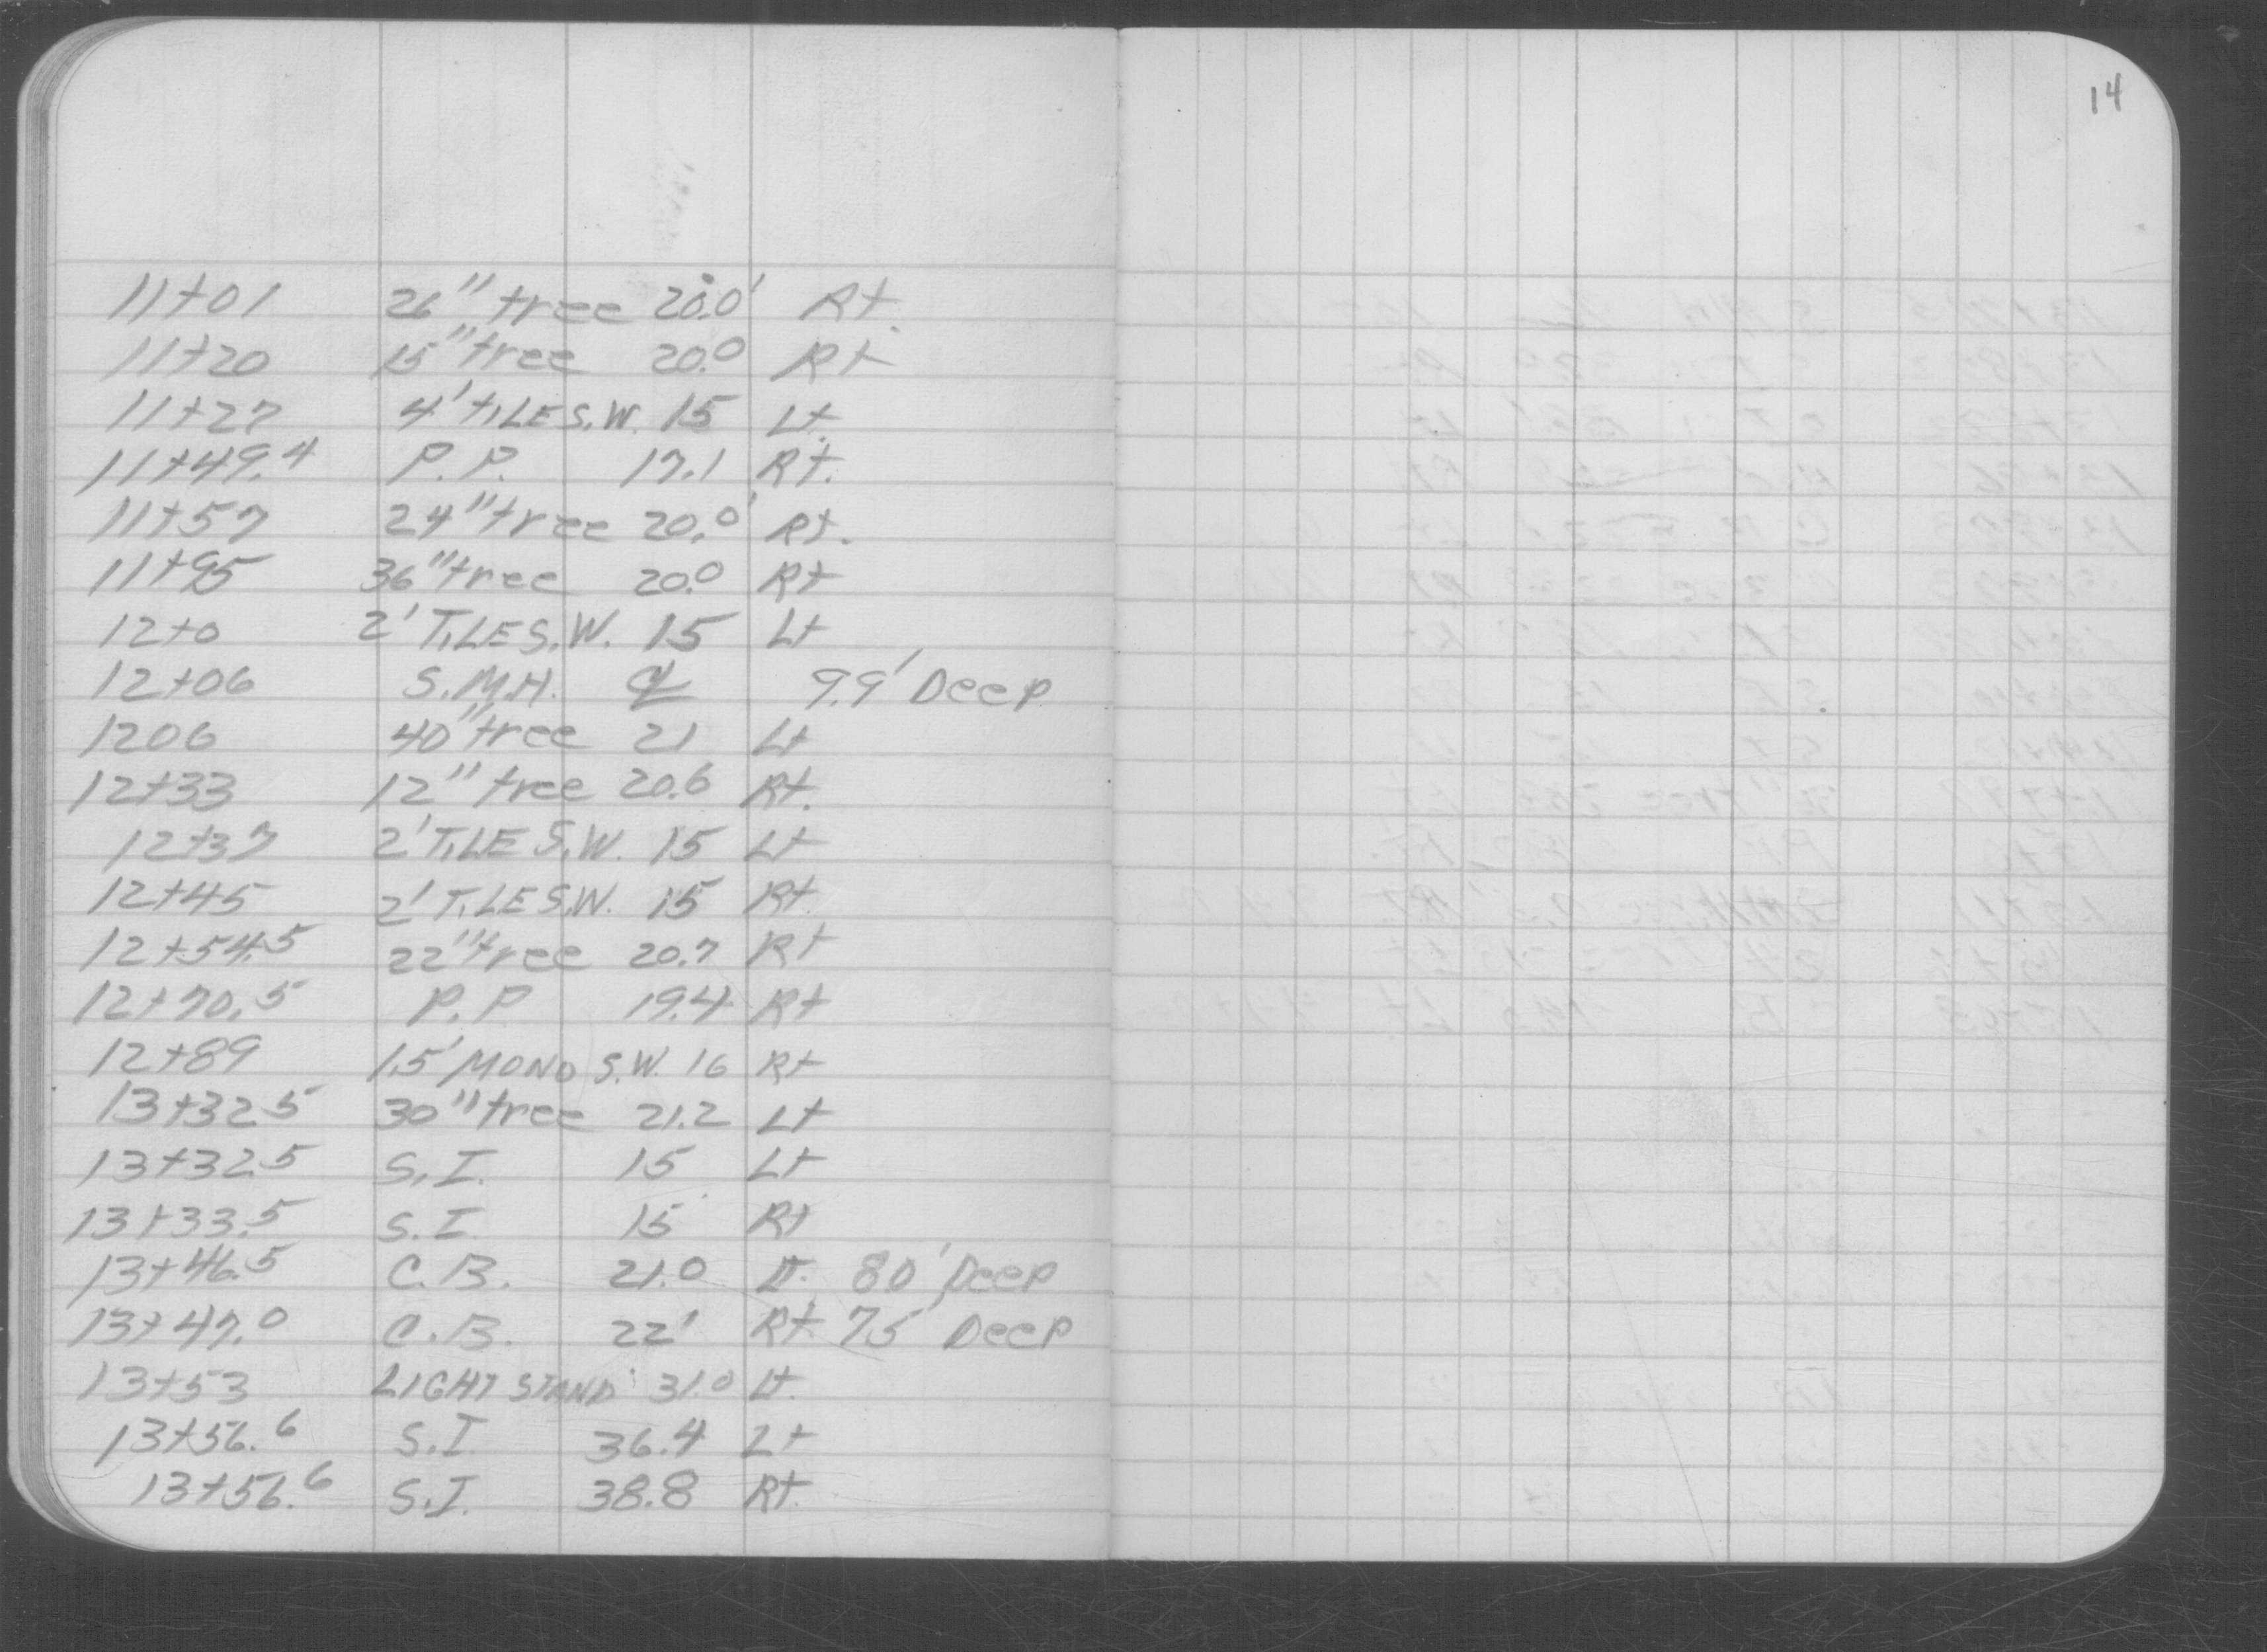 14
11+01 26" tree 20.0' Rt.
11+20 15" tree 20.0 Rt
11+27 4' TILE S.W. 15 Lt.
11+49.4 P.P. 17.1 Rt.
11+57 24" tree 20.0' Rt.
11+95 36" tree 20.0 Rt
12+0 2' TILE S.W. 15 Lt
12+06 S.M.H. ℄ 9.9' Deep
1206 40" tree 21 Lt
12+33 12" tree 20.6 Rt.
12+37 2' TILE S.W. 15 Lt
12+45 2' TILE S.W. 15 Rt
12+54.5 22" tree 20.7 Rt
12+70.5 P.P 19.4 Rt
12+89 1.5' MONO S.W. 16 Rt
13+32.5 30" tree 21.2 Lt
13+32.5 S.I. 15 Lt
13+33.5 S.I. 15 Rt
13+46.5 C.B. 21.0 Lt. 8.0' Deep
13+47.0 C.B. 22' Rt 7.5' Deep
13+53 LIGHT STAND 31.0 Lt.
13+56.6 S.I. 36.4 Lt
13+56.6 S.I. 38.8 Rt.